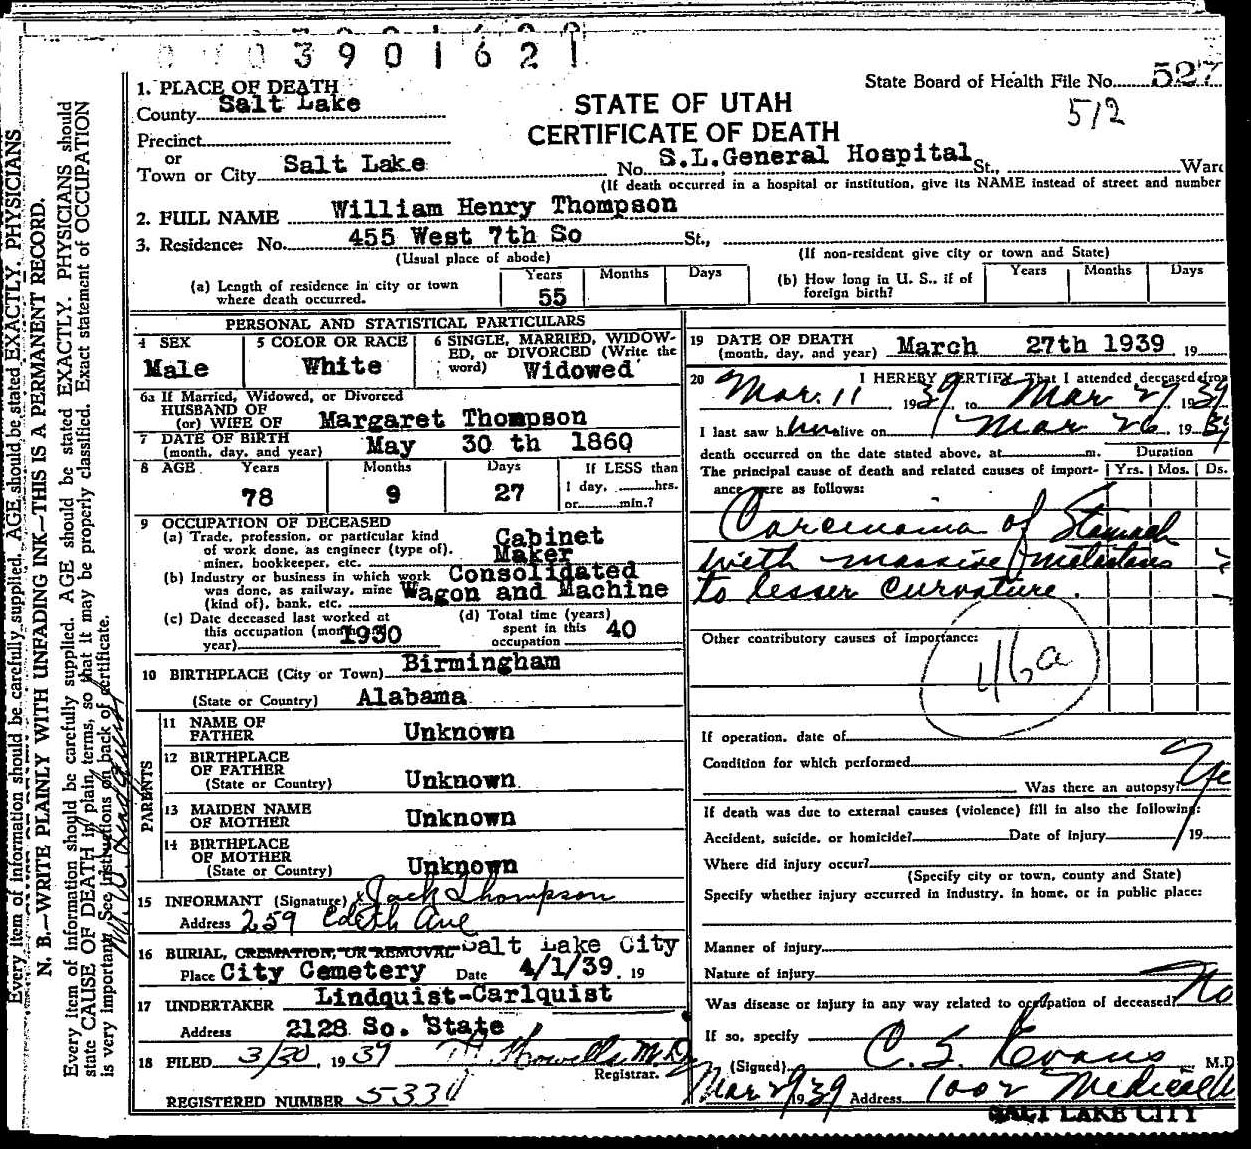 3901621
State Board of Health File No. 527
512
STATE OF UTAH
CERTIFICATE OF DEATH
1. PLACE OF DEATH
County Salt Lake
Precinct
or
Town or City Salt Lake No. S.L.General Hospital St., Ward
(If death occurred in a hospital or institution, give its NAME instead of street and number
2. FULL NAME William Henry Thompson
3. Residence: No. 455 West 7th So St.,
(Usual place of abode) (If non-resident give city or town and State)
(a) Length of residence in city or town where death occurred. Years 55 Months Days
(b) How long in U. S., if of foreign birth? Years Months Days
PERSONAL AND STATISTICAL PARTICULARS
4 SEX Male
5 COLOR OR RACE White
6 SINGLE, MARRIED, WIDOWED, or DIVORCED (Write the word) Widowed
6a If Married, Widowed, or Divorced
HUSBAND OF
(or) WIFE OF Margaret Thompson
7 DATE OF BIRTH
(month, day, and year) May 30 th 1860
8 AGE Years 78 Months 9 Days 27 If LESS than
1 day, hrs.
or min.?
9 OCCUPATION OF DECEASED
(a) Trade, profession, or particular kind of work done, as engineer (type of), miner, bookkeeper, etc. Cabinet Maker
(b) Industry or business in which work was done, as railway, mine (kind of), bank, etc. Consolidated Wagon and Machine
(c) Date deceased last worked at this occupation (month year) 1930
(d) Total time (years) spent in this occupation 40
10 BIRTHPLACE (City or Town) Birmingham
(State or Country) Alabama
PARENTS
11 NAME OF FATHER Unknown
12 BIRTHPLACE OF FATHER
(State or Country) Unknown
13 MAIDEN NAME OF MOTHER Unknown
14 BIRTHPLACE OF MOTHER
(State or Country) Unknown
15 INFORMANT (Signature) x Jack Thompson
Address 259 Edith Ave
16 BURIAL, CREMATION, OR REMOVAL Salt Lake City
Place City Cemetery Date 4/1/39. 19
17 UNDERTAKER Lindquist-Carlquist
Address 2128 So. State
18 FILED 3/30, 1939 Howells M.D.
Registrar.
REGISTERED NUMBER 5334
19 DATE OF DEATH
(month, day, and year) March 27th 1939 19
20 I HEREBY CERTIFY, That I attended deceased from
Mar. 11 1939 to Mar 27 1939
I last saw him alive on Mar 26 1939
death occurred on the date stated above, at m. Duration
The principal cause of death and related causes of importance were as follows: Yrs. Mos. Ds.
Carcinoma of Stomach
with massive metastasis
to lesser curvature.
Other contributory causes of importance:
46a
If operation, date of
Condition for which performed
Was there an autopsy? Yes
If death was due to external causes (violence) fill in also the following:
Accident, suicide, or homicide? Date of injury 19
Where did injury occur?
(Specify city or town, county and State)
Specify whether injury occurred in industry, in home, or in public place:
Manner of injury
Nature of injury
Was disease or injury in any way related to occupation of deceased? No
If so, specify
(Signed) C. S. Evans M.D
Mar 29 1939 Address 1002 Medical
SALT LAKE CITY
N. B.—WRITE PLAINLY WITH UNFADING INK—THIS IS A PERMANENT RECORD.
Every item of information should be carefully supplied. AGE should be stated EXACTLY. PHYSICIANS
Every item of information should be carefully supplied. AGE should be stated EXACTLY. PHYSICIANS should
state CAUSE OF DEATH in plain terms, so that it may be properly classified. Exact statement of OCCUPATION
is very important. See instructions on back of certificate.